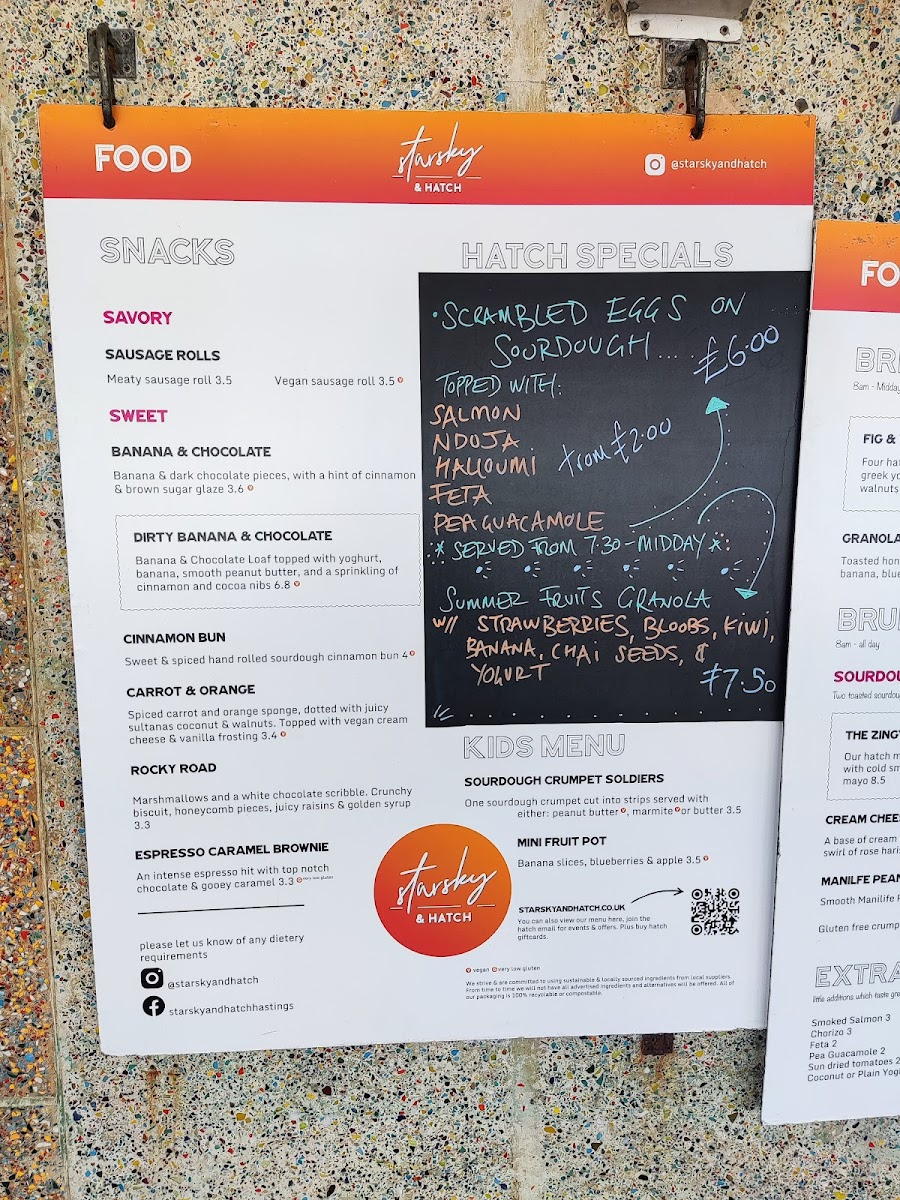 FOOD
starsky
& HATCH
@starskyandhatch
SNACKS
SAVORY
SAUSAGE ROLLS
Meaty sausage roll 3.5
Vegan sausage roll 3.5
SWEET
BANANA & CHOCOLATE
Banana & dark chocolate pieces, with a hint of cinnamon
& brown sugar glaze 3.6
DIRTY BANANA & CHOCOLATE
Banana & Chocolate Loaf topped with yoghurt,
banana, smooth peanut butter, and a sprinkling of
cinnamon and cocoa nibs 6.8
CINNAMON BUN
Sweet & spiced hand rolled sourdough cinnamon bun 4
CARROT & ORANGE
Spiced carrot and orange sponge, dotted with juicy
sultanas coconut & walnuts. Topped with vegan cream
cheese & vanilla frosting 3.4
ROCKY ROAD
Marshmallows and a white chocolate scribble. Crunchy
biscuit, honeycomb pieces, juicy raisins & golden syrup
3.3
ESPRESSO CARAMEL BROWNIE
An intense espresso hit with top notch
chocolate & gooey caramel 3.3 very low gluten
please let us know of any dietery
requirements
@starskyandhatch
starskyandhatchhastings
HATCH SPECIALS
• SCRAMBLED EGGS ON
SOURDOUGH.... £6.00
TOPPED WITH:
SALMON
NDOJA
HALLOUMI from £2.00
FETA
PEA GUACAMOLE
* SERVED FROM 7:30 - MIDDAY *
SUMMER FRUITS GRANOLA
W// STRAWBERRIES, BLOOBS, KIWI,
BANANA, CHAI SEEDS, &
YOGURT
£7.50
KIDS MENU
SOURDOUGH CRUMPET SOLDIERS
One sourdough crumpet cut into strips served with
either: peanut butter, marmite or butter 3.5
MINI FRUIT POT
Banana slices, blueberries & apple 3.5
starsky
& HATCH
STARSKYANDHATCH.CO.UK
You can also view our menu here, join the
hatch email for events & offers. Plus buy hatch
giftcards.
vegan very low gluten
We strive & are committed to using sustainable & locally sourced ingredients from local suppliers.
From time to time we will not have all advertised ingredients and alternatives will be offered. All of
our packaging is 100% recyclable or compostable.
FO
BRE
8am - Midday
FIG &
Four ha
greek yo
walnuts
GRANOLA
Toasted hon
banana, blue
BRU
8am - all day
SOURDOU
Two toasted sourdou
THE ZING
Our hatch m
with cold sm
mayo 8.5
CREAM CHEE
A base of cream
swirl of rose haris
MANILFE PEAN
Smooth Manilife P
Gluten free crump
EXTRA
little additions which taste gre
Smoked Salmon 3
Chorizo 3
Feta 2
Pea Guacamole 2
Sun dried tomatoes 2
Coconut or Plain Yog